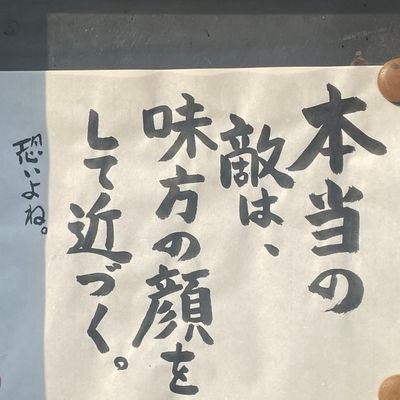 本当の
敵は、
味方の顔を
して近づく。
恐いよね。